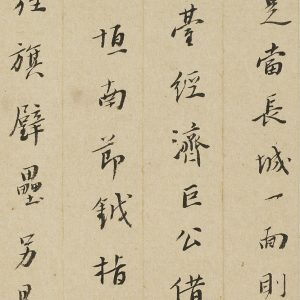 是當長城一面則
臺經濟巨公借
垣南節鉞指
旌旗壁壘另